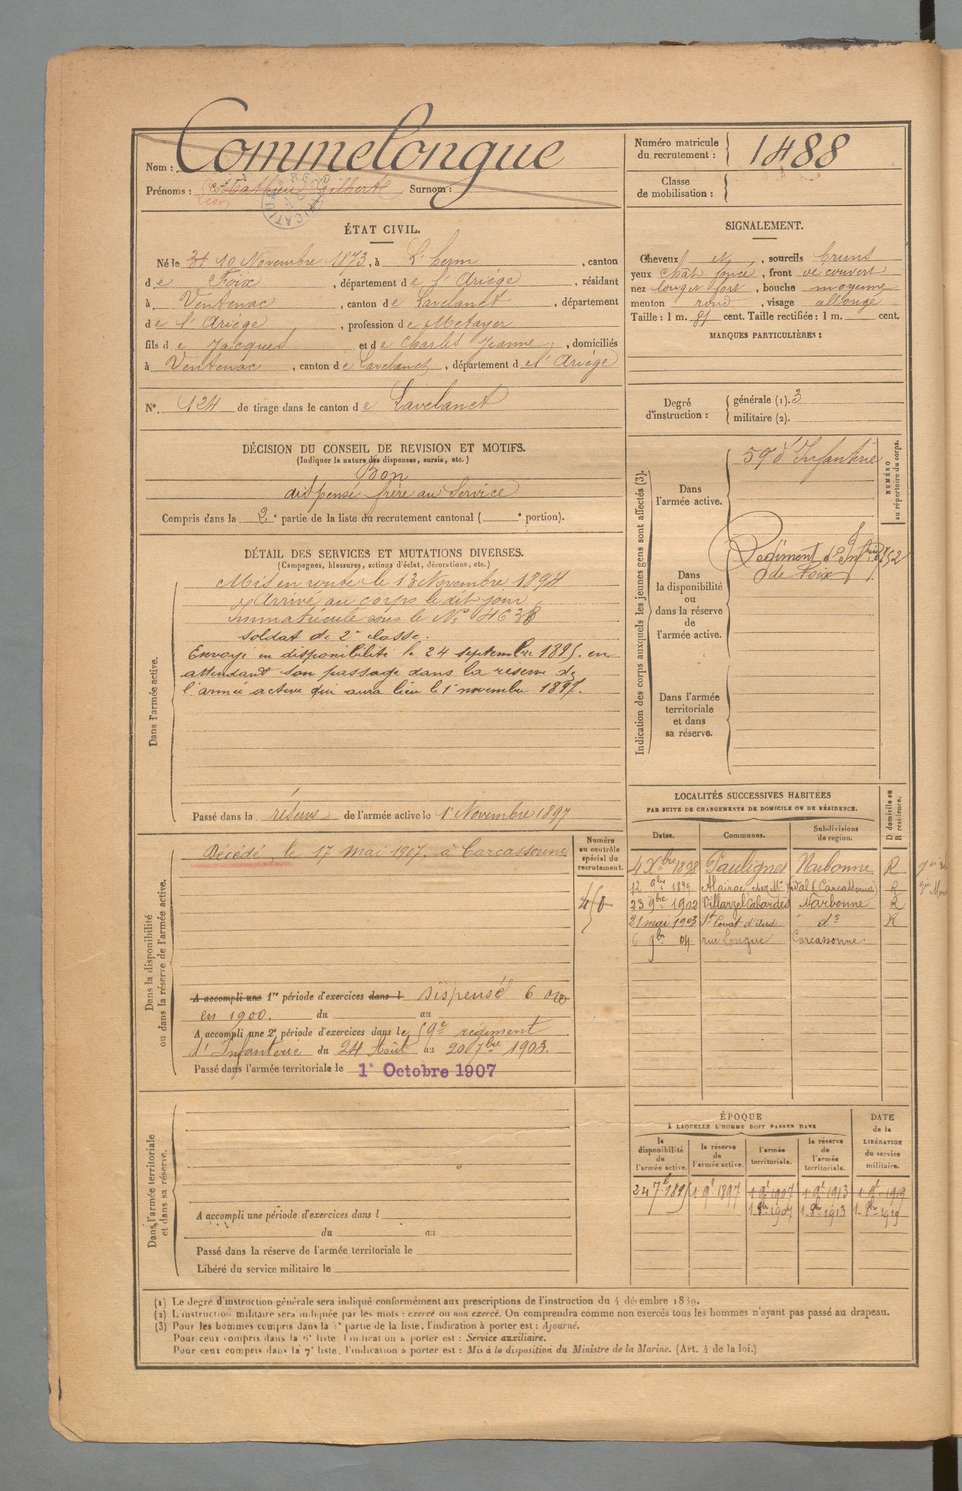 Nom : Commelongue
Prénoms : Gilbert Surnom :
Numéro matricule du recrutement : 1488
Classe de mobilisation :
ÉTAT CIVIL.
Né le 10 Novembre 1873, à L'herm, canton
de Foix, département de l'Ariége, résidant
à Ventenac, canton de Lavelanet, département
de l'Ariége, profession de Métayer
fils de Jacques et de Charles Jeanne, domiciliés
à Ventenac, canton de Lavelanet, département de l'Ariége
N° 124 de tirage dans le canton de Lavelanet
SIGNALEMENT.
Cheveux et, sourcils bruns
yeux chât foncé, front découvert
nez fort, bouche moyenne
menton rond, visage allongé
Taille : 1 m. cent. Taille rectifiée : 1 m. cent.
MARQUES PARTICULIÈRES :
Degré d'instruction : générale (1). 3
militaire (2).
DÉCISION DU CONSEIL DE REVISION ET MOTIFS.
(Indiquer la nature des dispenses, sursis, etc.)
Bon
dispensé frère au Service
Compris dans la 2e partie de la liste du recrutement cantonal ( e portion).
DÉTAIL DES SERVICES ET MUTATIONS DIVERSES.
(Campagnes, blessures, actions d'éclat, décorations, etc.)
Dans l'armée active.
Mis en route le 13 Novembre 1894
Arrivé au corps le dit jour
immatriculé sous le N°
soldat de 2e classe.
Envoyé en disponibilité le 24 septembre 1895 en
attendant son passage dans la réserve de
l'armée active qui aura lieu le 1er novembre 1897.
Passé dans la réserve de l'armée active le 1er Novembre 1897
Indication des corps auxquels les jeunes gens sont affectés (3).
NUMÉRO au répertoire du corps.
Dans l'armée active.
59e d'Infanterie
Dans la disponibilité ou dans la réserve de l'armée active.
Régiment d'Inf
de Foix
Dans l'armée territoriale et dans sa réserve.
Dans la disponibilité ou dans la réserve de l'armée active.
Décédé le 17 mai 1907 à Carcassonne
Numéro au contrôle spécial du recrutement.
A accompli une 1re période d'exercices dans l Dispensé
en 1900. du au
A accompli une 2e période d'exercices dans le 59e régiment
d'Infanterie du 24 Août au 20 7bre 1903.
Passé dans l'armée territoriale le 1er Octobre 1907
LOCALITÉS SUCCESSIVES HABITÉES
PAR SUITE DE CHANGEMENTS DE DOMICILE OU DE RÉSIDENCE.
D domicile ou R résidence.
Dates. Communes. Subdivisions de region.
4 Xbre 1898 Pauligne Narbonne R
12 1899 Alairac (Carcassonne) R
23 9bre 1902 Villarzel Cabardès Narbonne R
21 mai 1903 St Couat d'Aude do R
6 9bre 04 rue Longue Carcassonne.
Dans l'armée territoriale et dans sa réserve.
A accompli une période d'exercices dans l
du au
Passé dans la réserve de l'armée territoriale le
Libéré du service militaire le
ÉPOQUE
À LAQUELLE L'HOMME DOIT PASSER DANS
DATE de la LIBÉRATION du service militaire.
la disponibilité de l'armée active. la réserve de l'armée active. l'armée territoriale. la réserve de l'armée territoriale.
24 7bre 1895 1 9bre 1897 1 9bre 1907 1 9bre 1913 1 9bre 1919
1 8bre 1907 1 8bre 1913 1 8bre 1919
(1) Le degré d'instruction générale sera indiqué conformément aux prescriptions de l'instruction du 4 décembre 1889.
(2) L'instruction militaire sera indiquée par les mots : exercé ou non exercé. On comprendra comme non exercés tous les hommes n'ayant pas passé au drapeau.
(3) Pour les hommes compris dans la partie de la liste, l'indication à porter est : Ajourné.
Pour ceux compris dans la liste l'indication à porter est : Service auxiliaire.
Pour ceux compris dans la 7e liste, l'indication à porter est : Mis à la disposition du Ministre de la Marine. (Art. 4 de la loi.)